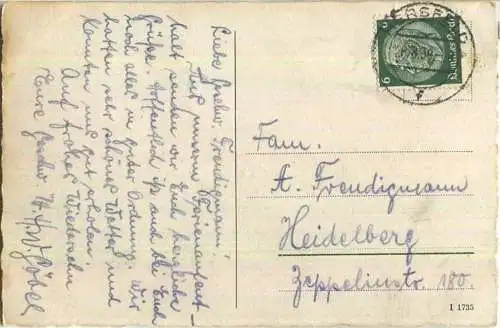 Liebe Geschw. Freudigmann!
Aus unserm Ferienaufent-
halt senden wir Euch herzliche
Grüße. Hoffentlich ist auch bei Euch
noch alles in guter Ordnung. Wir
hatten sehr schönes Wetter und
konnten uns gut erholen.
Auf frohes Wiedersehn
Eure Geschw. Göbel
6 Deutsches Reich 6
Fam.
A. Freudigmann
Heidelberg
Zeppelinstr. 180.
I 1735